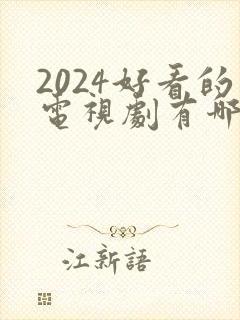 2024好看的
電視劇有哪
江新語